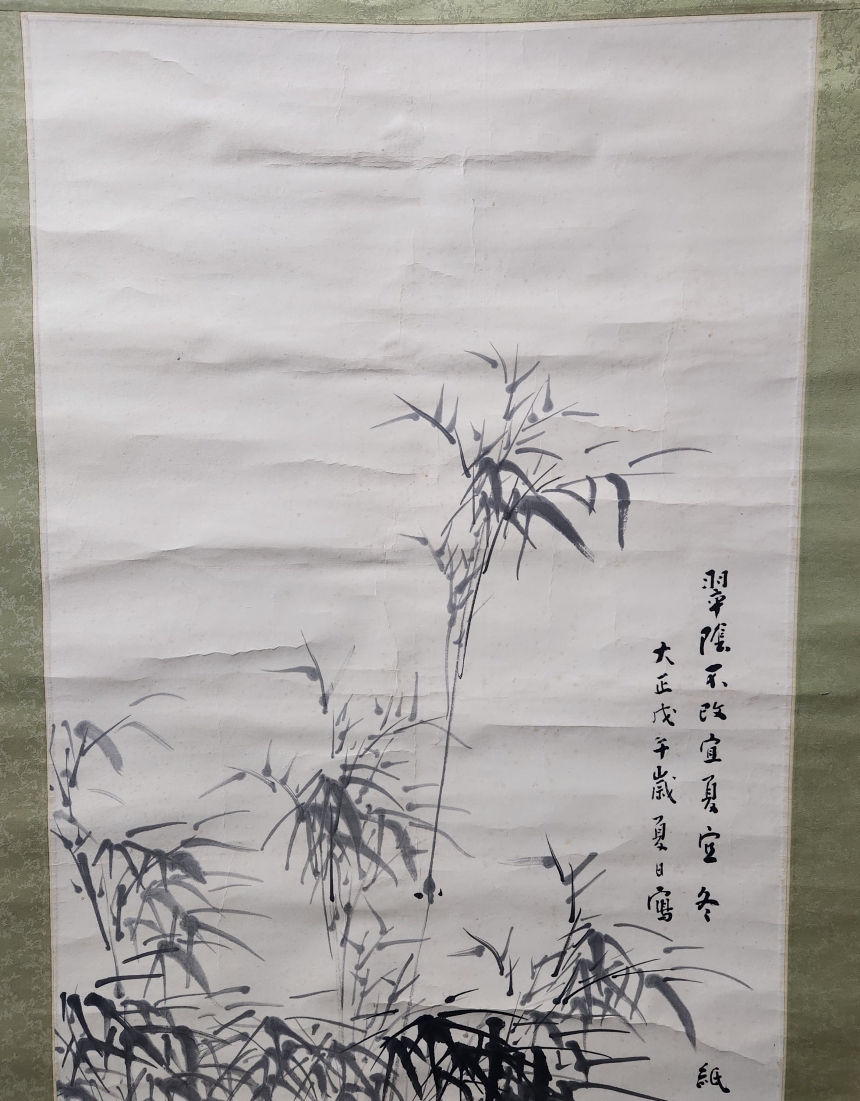 翠陰不改宜夏宜冬
大正戊午歳夏日寫
紙